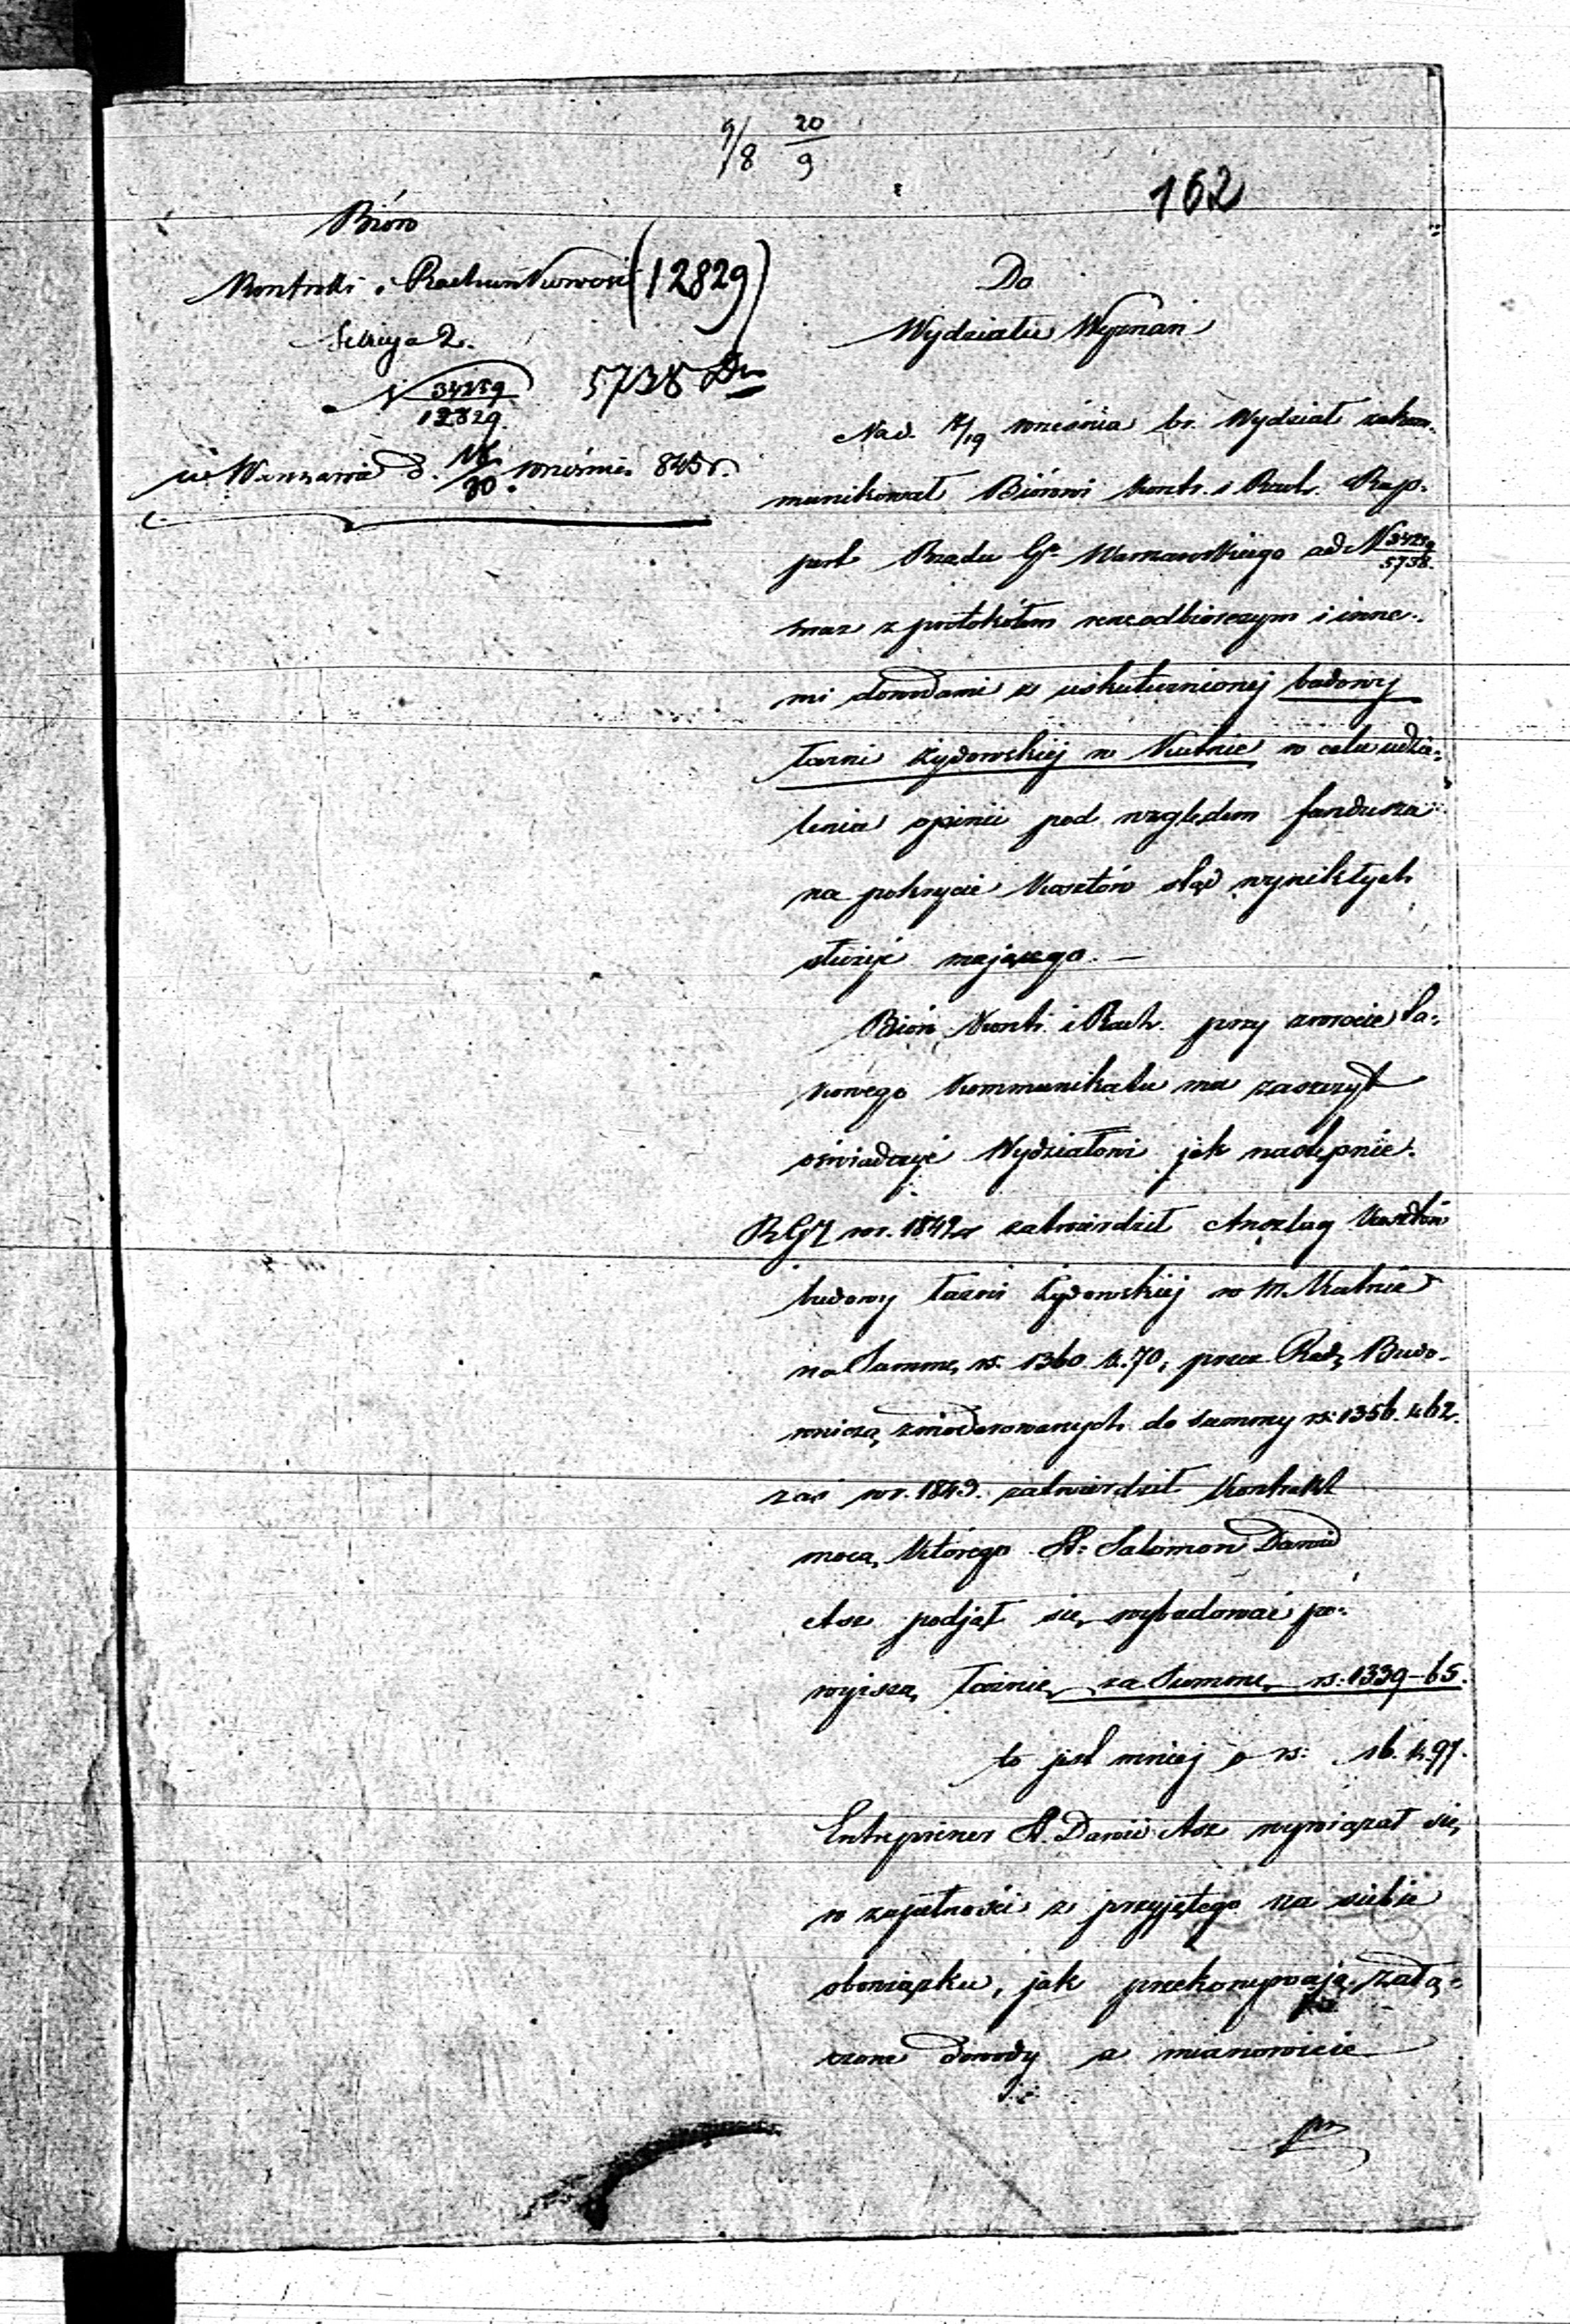 9/8 20/9
162
Bióro
Kontrolli i Rachunkowości (12829)
Sekcya 2.
N 34259/12829.
5738
w Warszawie d. 18/30 września 845 r.
Do
Wydziału Wyznań
Na d. 7/19 września br. Wydział zakom-
munikował Biórowi Kontr. i Rach. Rap-
port Rządu Gu. Warszawskiego ad N 34259/5738.
wraz z protokołem rewizodbiorczym i inne-
mi dowodami z uskutecznionej budowy
łaźni żydowskiej w Kutnie w celu udzie-
lenia opinii pod względem funduszu
na pokrycie kosztów stąd wynikłych
służyć mającego. —
Bióro Kontr. i Rach. przy zwrocie ta-
kowego kommunikatu ma zaszczyt
oświadczyć Wydziałowi jak następnie.
RG w r. 1842 zatwierdził Anszlag kosztów
budowy łaźni żydowskiej w m. Kutnie
na Summę rs. 1360 k. 70, przez Radę Budo-
wniczą zmoderowanych do summy rs: 1356. k 62.
zaś w r. 1843. zatwierdził Kontrakt
mocą którego St: Salomon Dawid
Asz podjął się wybudować po-
wyższą łaźnię za Summę rs: 1339-65.
to jest mniej o rs: 16. k. 97.
Entreprener St. Dawid Asz wywiązał się
w zupełności z przyjętego na siebie
obowiązku, jak przekonywają załą-
czone dowody a mianowicie